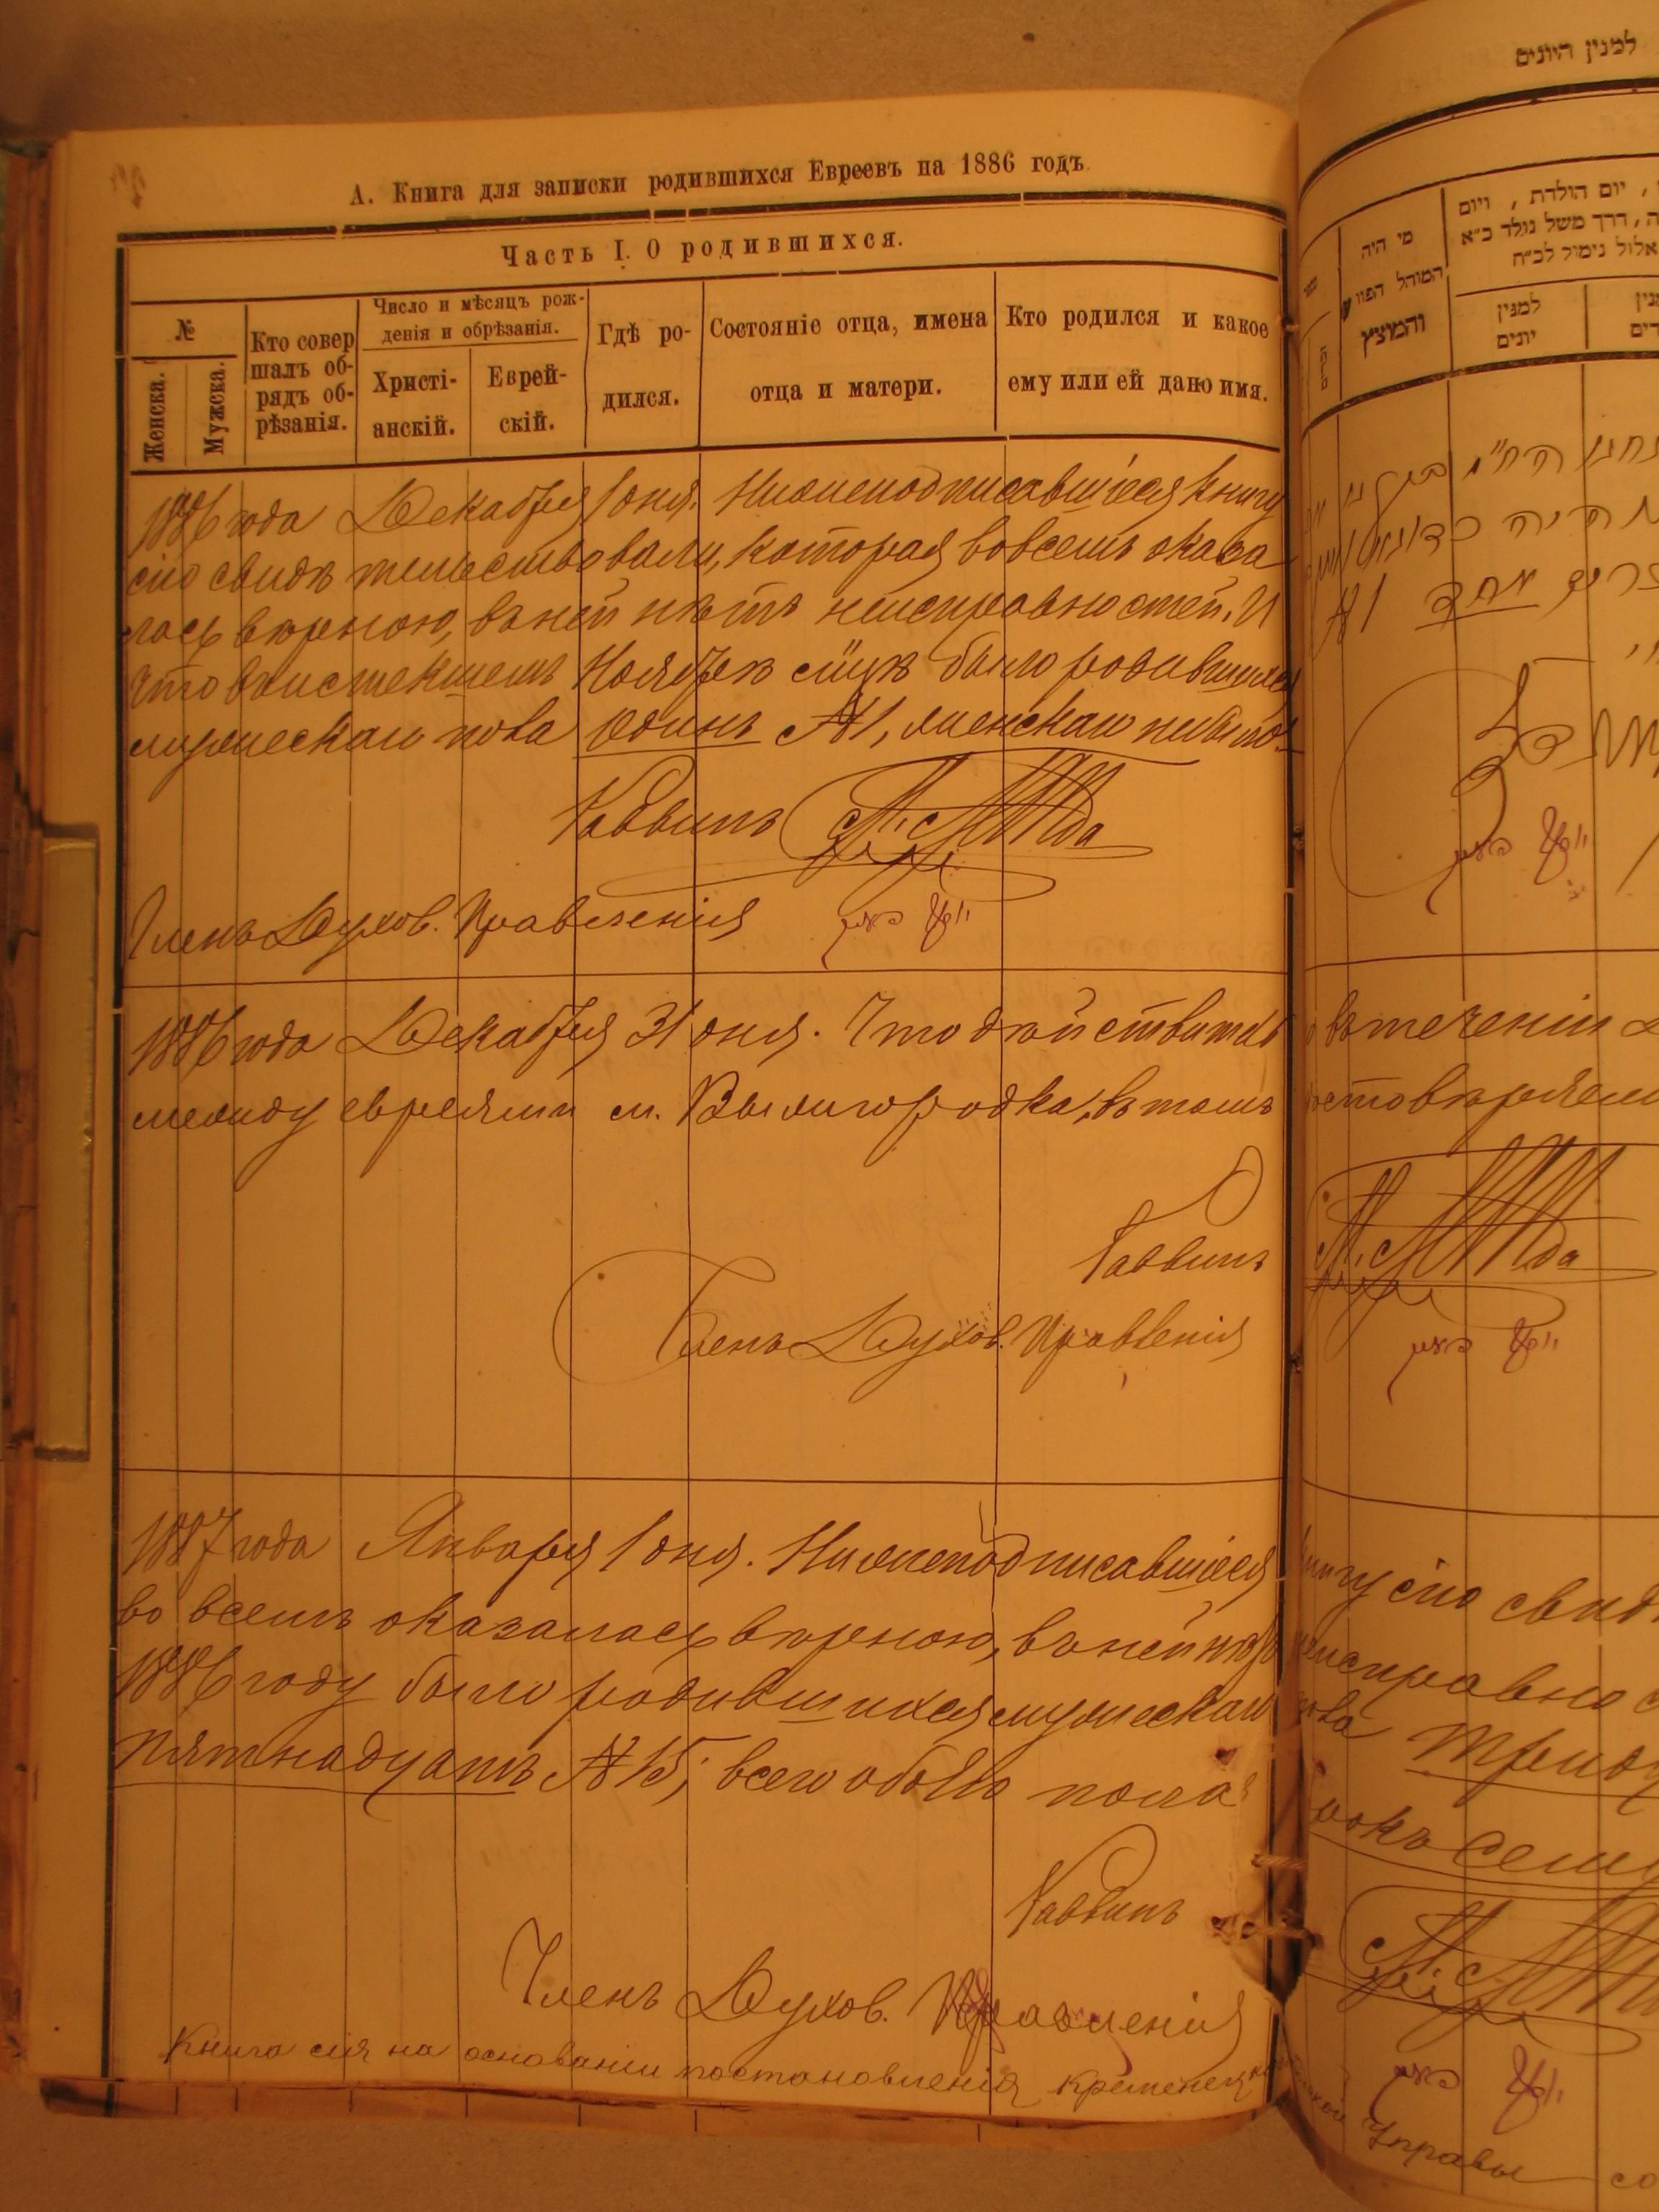 А. Книга для записки родившихся Евреевъ на 1886 годъ
Часть I. О родившихся.
№
Женска.
Мужска.
Кто совер
шалъ об-
рядъ об-
рѣзанія.
Число и мѣсяцъ рож-
денія и обрѣзанія.
Христі-
анскій.
Еврей-
скій.
Гдѣ ро-
дился.
Состояніе отца, имена
отца и матери.
Кто родился и какое
ему или ей дано имя.
1886 года Декабря 1 дня. Нижеподписавшіеся книгу
сію свидѣтельствовали, которая вовсемъ оказа
лась вѣрною, въ ней нѣтъ неисправностей. И
что въ истекшемъ Ноябрѣ м-цѣ было родившихся
мужескаго пола одинъ №1, женскаго небыло.
Раввинъ
Членъ Духов. Правленія
1886 года Декабря 31 дня. Что дѣйствитель
между евреями м. Вышгородка, въ томъ
Раввинъ
Членъ Духов. Правленія
1887 года Января 1 дня. Нижеподписавшіеся
во всемъ оказалась вѣрною, въ ней нѣтъ
1886 году было родившихся мужескаго
пятнадцать №15; всего обоего пола
Раввинъ
Членъ Духов. Правленія
Книга сія на основаніи постановленія Кременецко
למנין היונים
מי היה
המוהל הפורע
והמוצץ
, יום הולדת , ויום
ה, דרך משל נולד כ״א
אלול נימול לכ״ח
למנין
יונים
въ теченіи
достовѣряемъ
книгу сію свидѣ
неисправнос
пола тридц
семь
Управы со